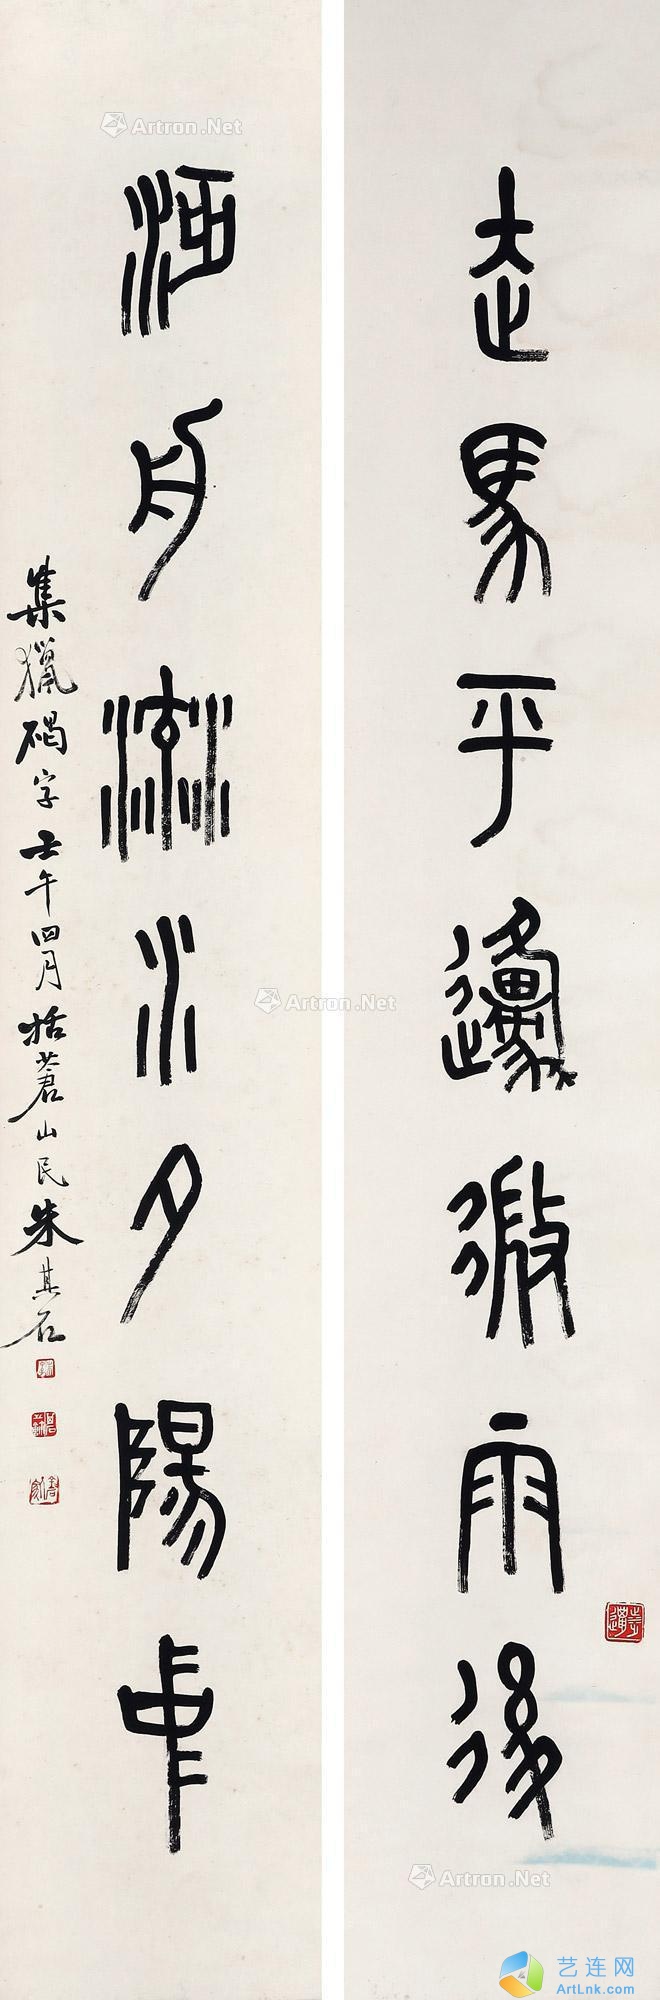 走馬平邍微雨後
洒舟流水夕陽中
集獵碣字壬午四月括蒼山民朱其石
Artron.Net
Artron.Net
Artron.Net
艺连网
ArtLnk.com